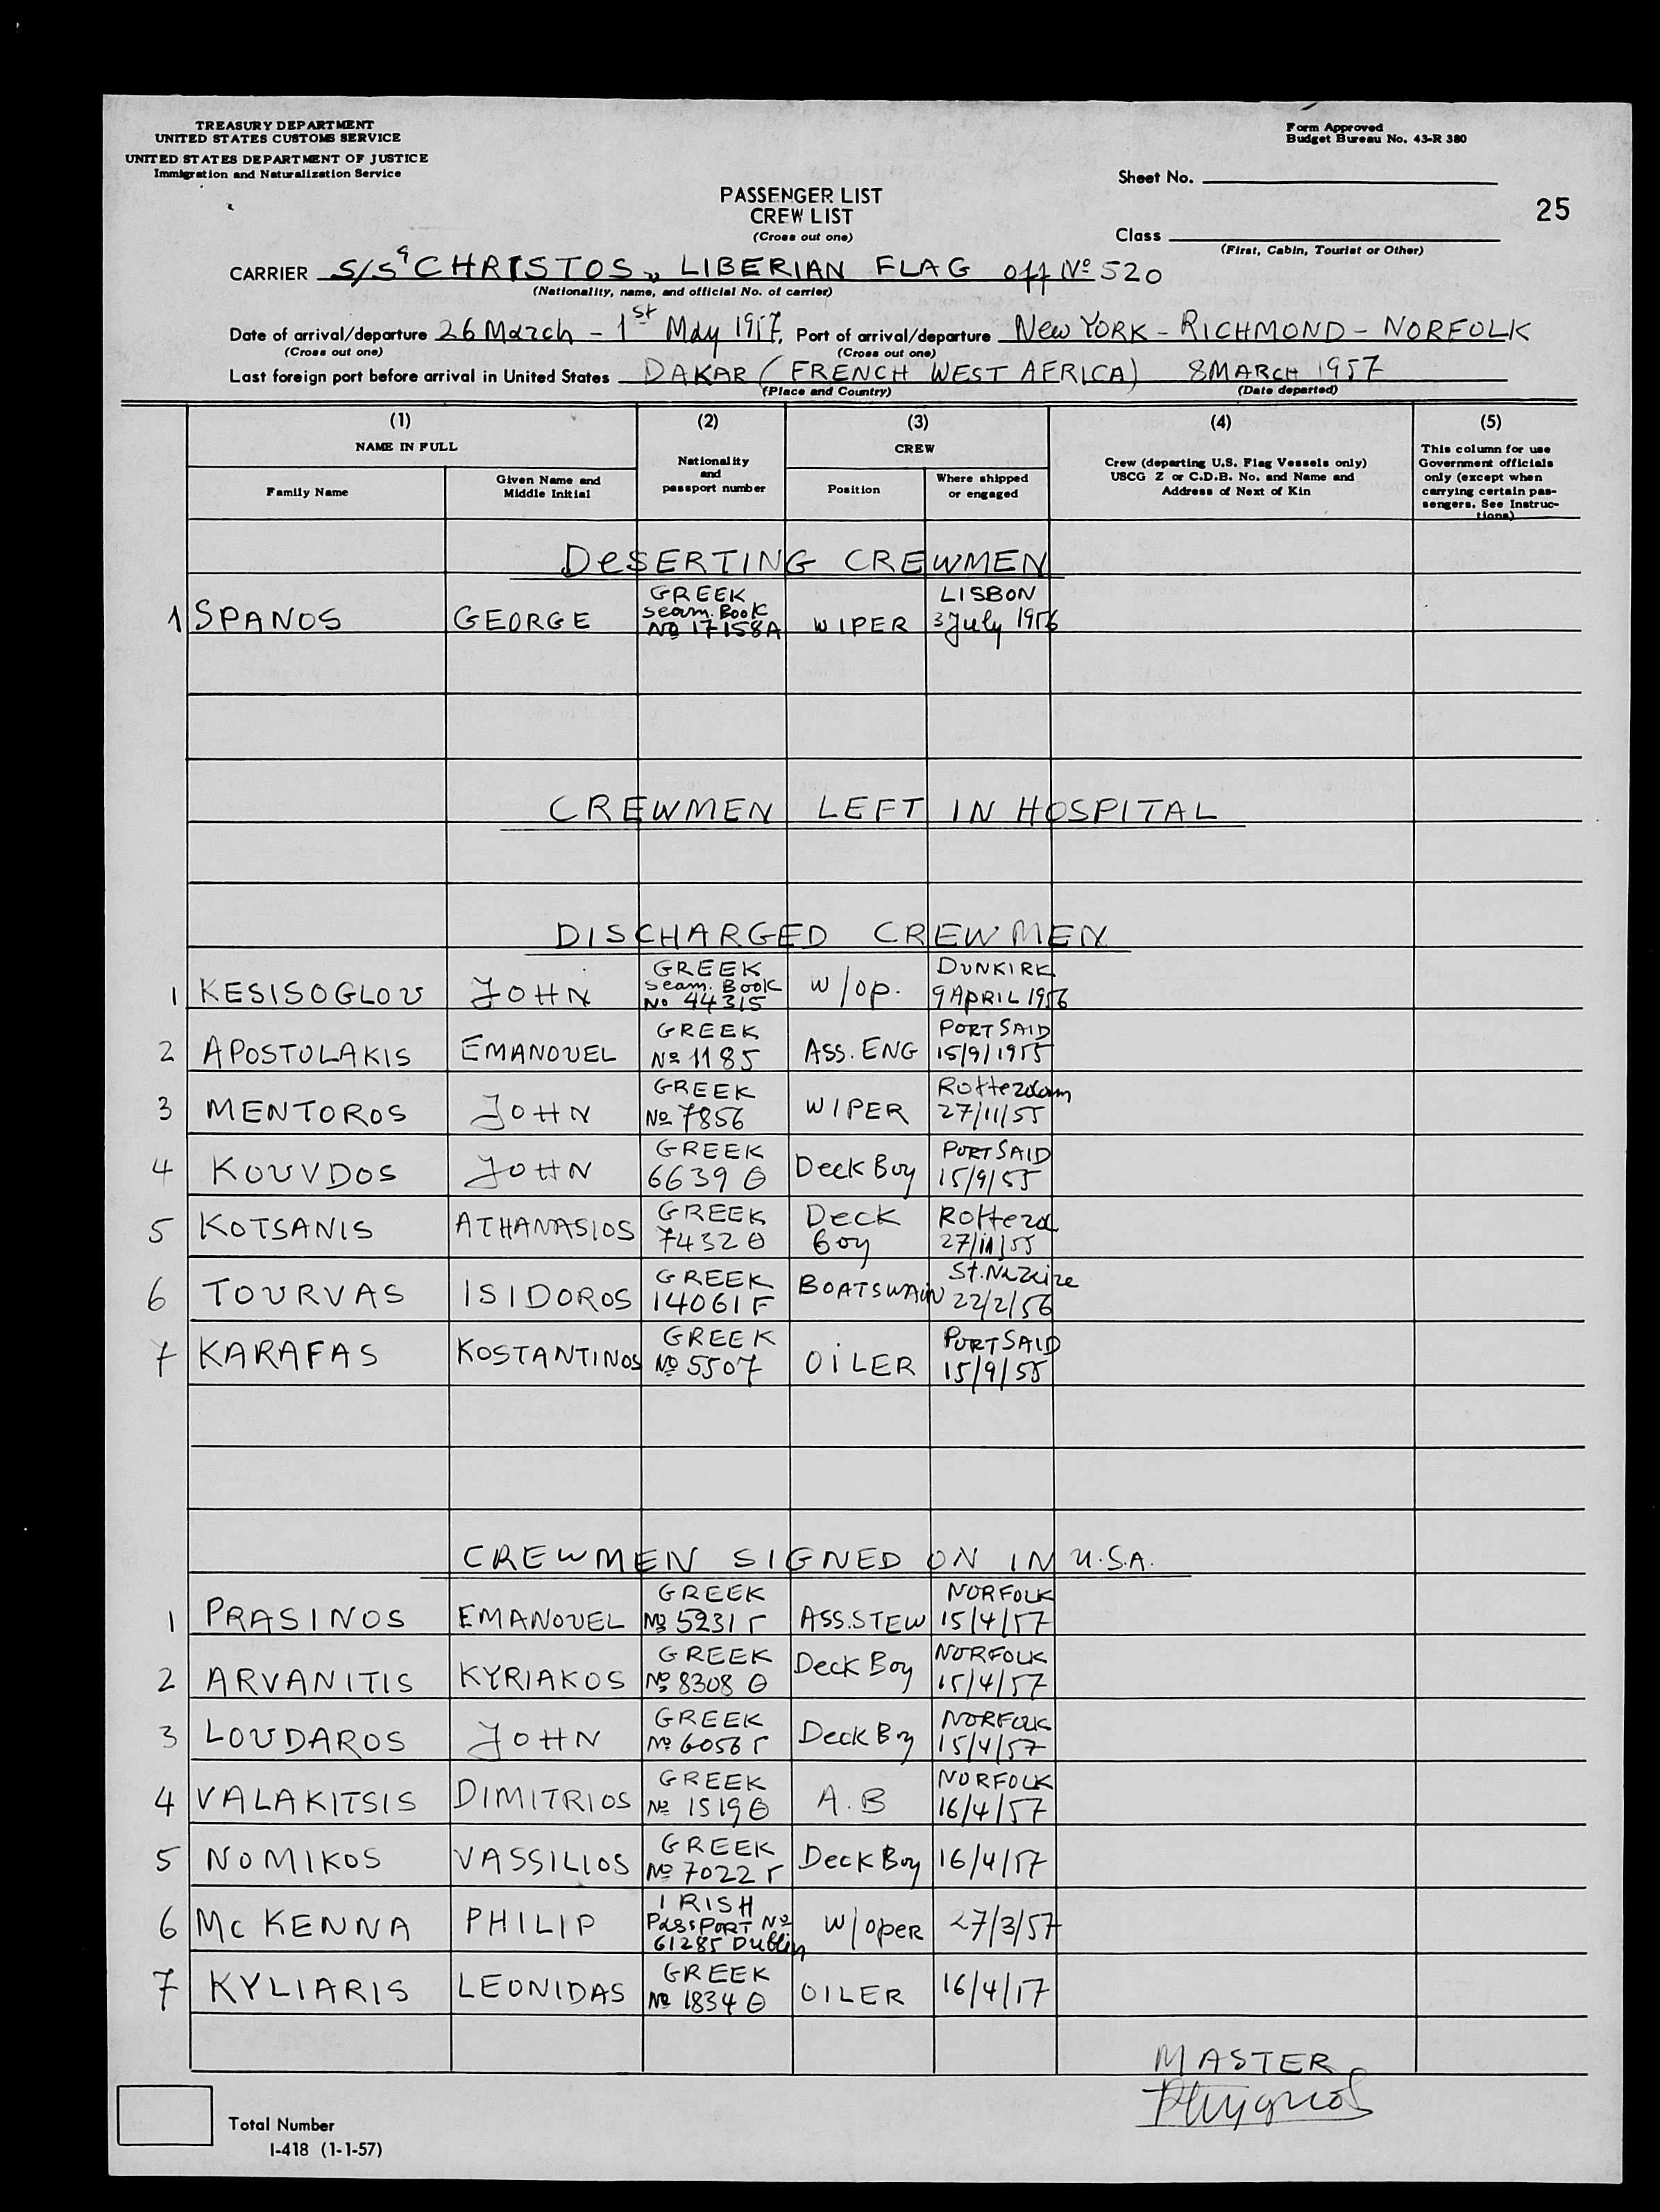 TREASURY DEPARTMENT
UNITED STATES CUSTOMS SERVICE
UNITED STATES DEPARTMENT OF JUSTICE
Immigration and Naturalization Service
Form Approved
Budget Bureau No. 43-R 380
Sheet No.
25
PASSENGER LIST
CREW LIST
(Cross out one)
Class
(First, Cabin, Tourist or Other)
CARRIER S/S "CHRISTOS" LIBERIAN FLAG off Nº 520
(Nationality, name, and official No. of carrier)
Date of arrival/departure 26 March - 1st May 1957, Port of arrival/departure New YORK - RICHMOND - NORFOLK
(Cross out one) (Cross out one)
Last foreign port before arrival in United States DAKAR (FRENCH WEST AFRICA) 8 MARCH 1957
(Place and Country) (Date departed)
(1) (2) (3) (4) (5)
NAME IN FULL
Family Name
Given Name and
Middle Initial
Nationality
and
passport number
CREW
Position
Where shipped
or engaged
Crew (departing U.S. Flag Vessels only)
USCG Z or C.D.B. No. and Name and
Address of Next of Kin
This column for use
Government officials
only (except when
carrying certain pas-
sengers. See Instruc-
tions)
DeSERTING CREWMEN
1 SPANOS GEORGE GREEK seam. Book Nº 17158A WIPER LISBON 3 July 1956
CREWMEN LEFT IN HOSPITAL
DISCHARGED CREWMEN
1 KESISOGLOU JOHN GREEK seam. Book Nº 44315 W/op. DUNKIRK 9 APRIL 1956
2 APOSTOLAKIS EMANOUEL GREEK Nº 1185 ASS. ENG PORT SAID 15/9/1955
3 MENTOROS JOHN GREEK Nº 7856 WIPER Rotterdam 27/11/55
4 KOUVDOS JOHN GREEK 6639 Θ Deck Boy PORT SAID 15/9/55
5 KOTSANIS ATHANASIOS GREEK 7432 Θ Deck Boy Rotterd 27/11/55
6 TOURVAS ISIDOROS GREEK 14061 F BOATSWAIN St. Nazaire 22/2/56
7 KARAFAS KOSTANTINOS GREEK Nº 5507 OiLER PORT SAID 15/9/55
CREWMEN SIGNED ON IN U.S.A.
1 PRASINOS EMANOUEL GREEK Nº 5231 Γ ASS.STEW NORFOLK 15/4/57
2 ARVANITIS KYRIAKOS GREEK Nº 8308 Θ Deck Boy NORFOLK 15/4/57
3 LOUDAROS JOHN GREEK Nº 6056 Γ Deck Boy NORFOLK 15/4/57
4 VALAKITSIS DIMITRIOS GREEK Nº 1519 Θ A.B NORFOLK 16/4/57
5 NOMIKOS VASSILIOS GREEK Nº 7022 Γ Deck Boy 16/4/57
6 Mc KENNA PHILIP IRISH PassPORT Nº 61285 Dublin W/oper 27/3/57
7 KYLIARIS LEONIDAS GREEK Nº 1834 Θ OILER 16/4/57
MASTER
Total Number
I-418 (1-1-57)